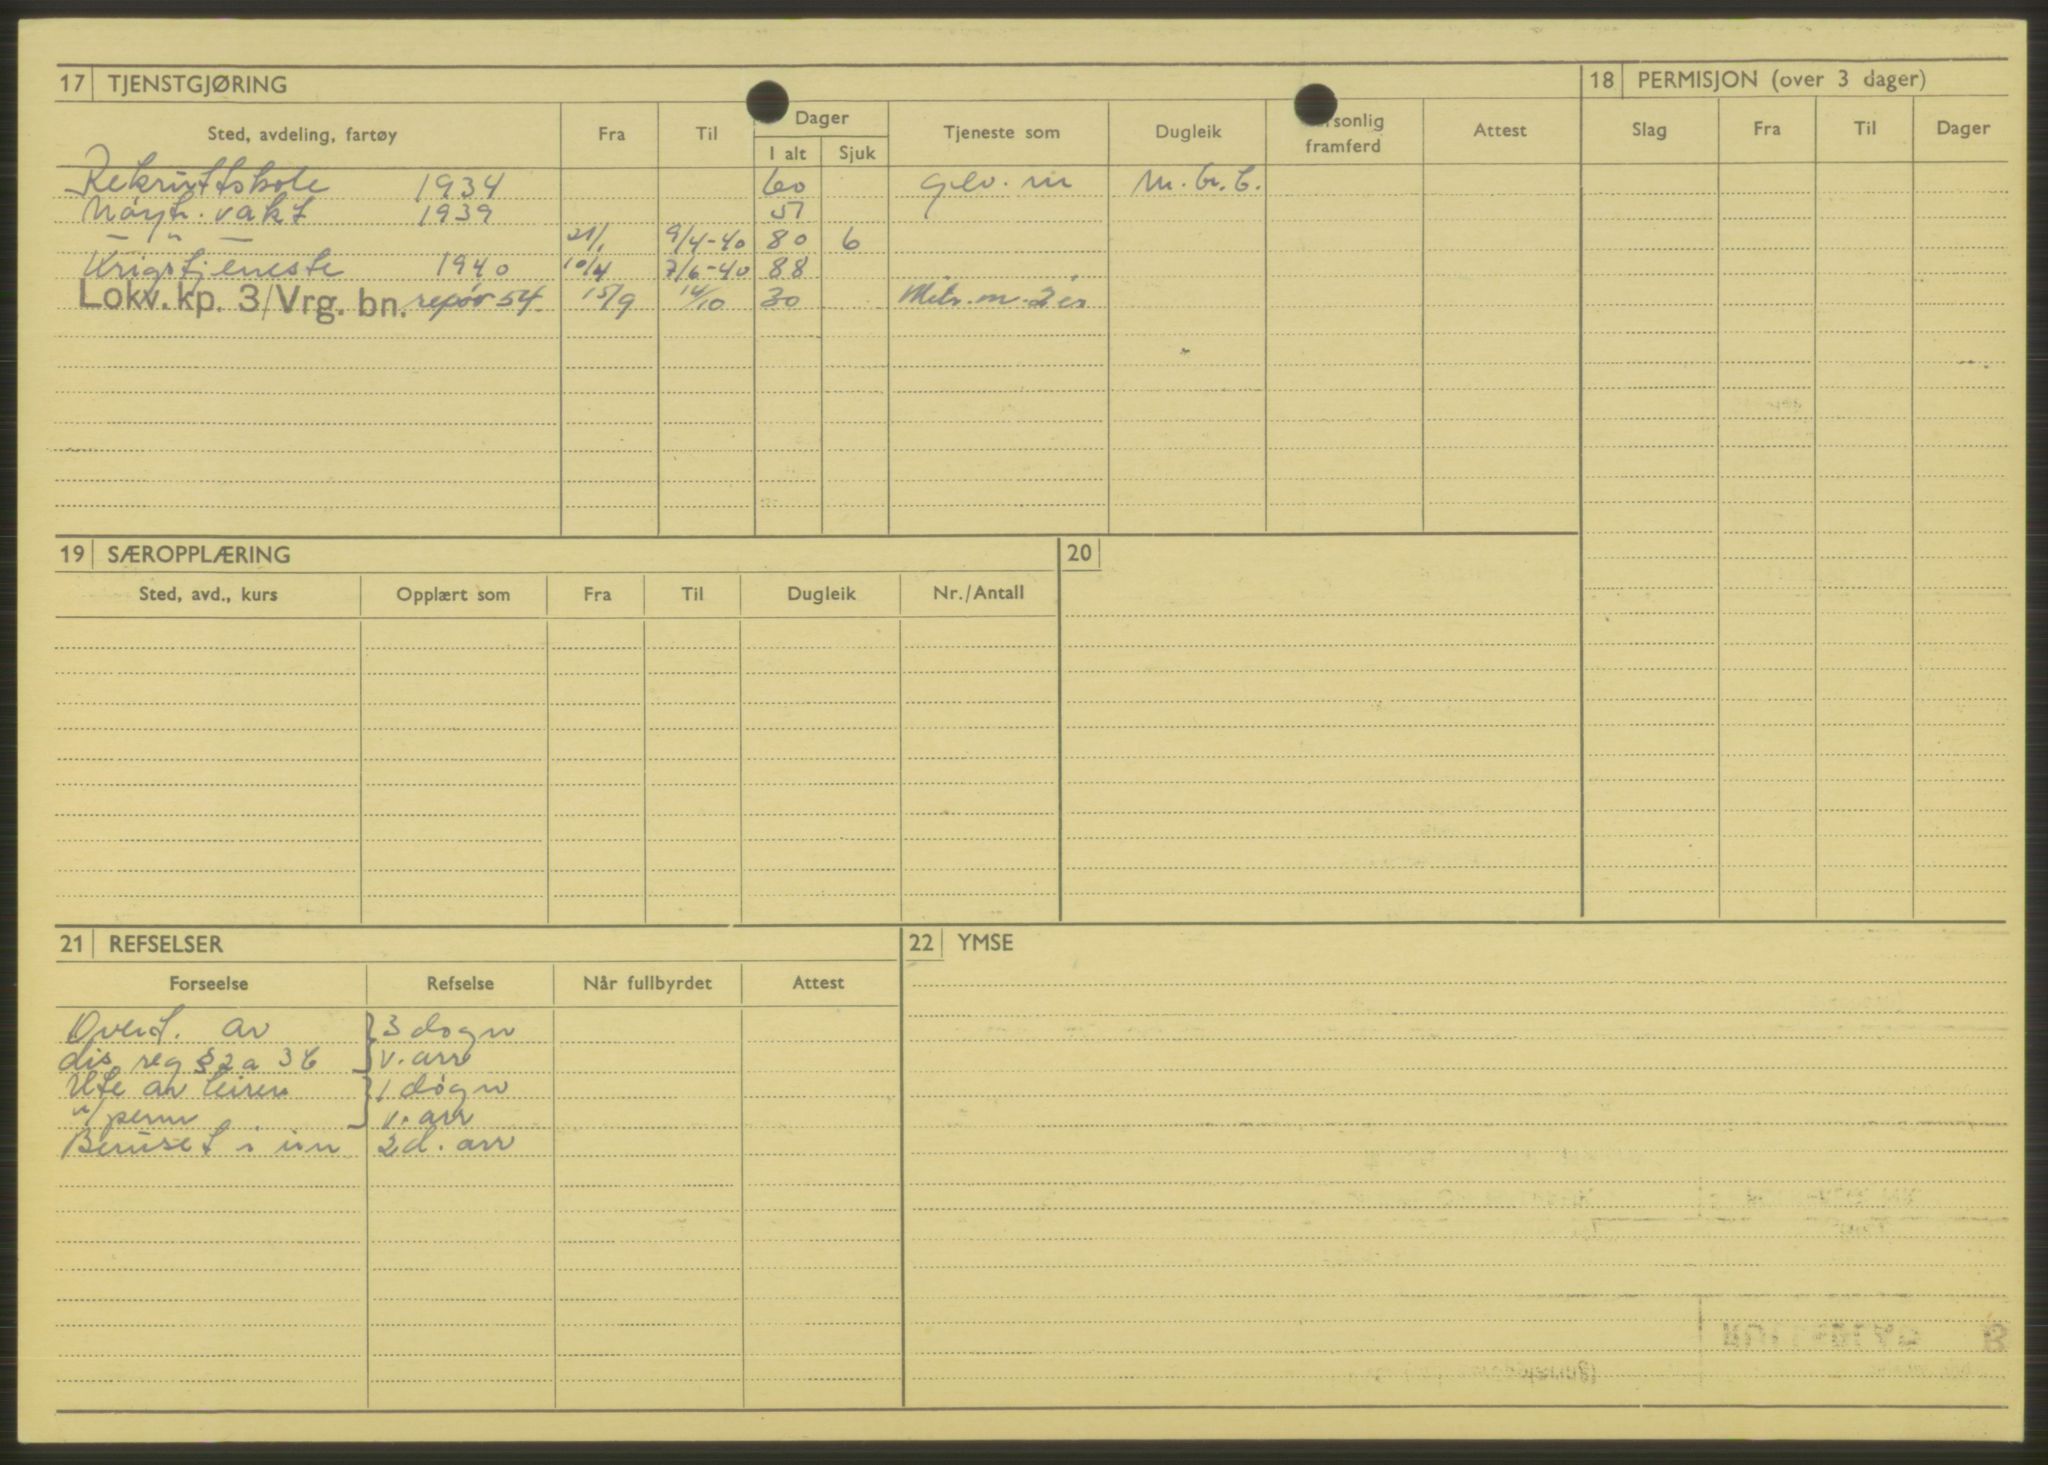 17 TJENSTGJØRING
18 PERMISJON (over 3 dager)
Sted, avdeling, fartøy Fra Til Dager Tjeneste som Dugleik rsonlig framferd Attest Slag Fra Til Dager
I alt Sjuk
Rekruttskole 1934 60 gev. m m. br. b.
Nøyt. vakt 1939 51
— " — 21/1 9/4-40 80 6
Krigstjeneste 1940 10/4 7/6-40 88
Lokv. kp. 3/Vrg. bn. repøv 54 15/9 14/10 30 Mitr. m. 2 er
19 SÆROPPLÆRING
20
Sted, avd., kurs Opplært som Fra Til Dugleik Nr./Antall
21 REFSELSER
22 YMSE
Forseelse Refselse Når fullbyrdet Attest
Overt. av 3 døgn
dis. reg § 2 a 3 b v. arr
Ute av leiren 1 døgn
u/perm v. arr
Beruset i un 2 d. arr